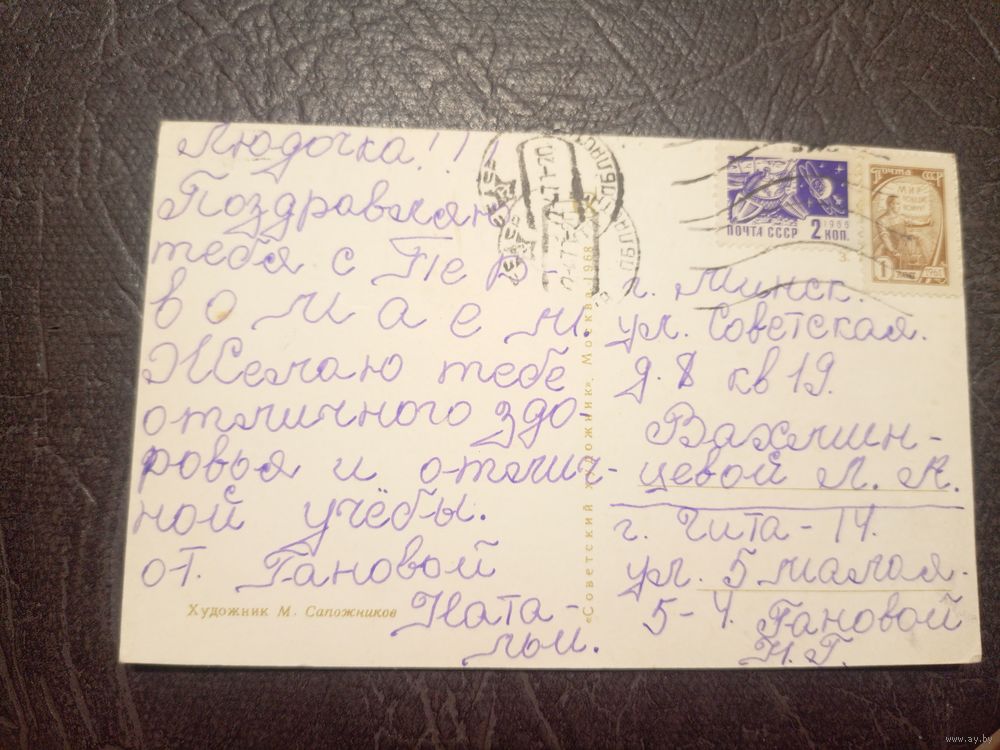 Людочка!!!
Поздравляю
тебя с Пер-
вомаем.
Желаю тебе
отличного здо-
ровья и отлич-
ной учёбы.
от. Гановой
Ната-
льи.
Художник М. Сапожников
«Советский художник». Москва 1968
ПОЧТА СССР 2 КОП.
1966
Почта СССР
МИР
1
г. Минск.
ул. Советская.
д. 8 кв 19.
Вахмин-
цевой Л. А.
г. Чита-14.
ул. 5 малая.
5-4. Гановой
Н.Г.
www.ay.by